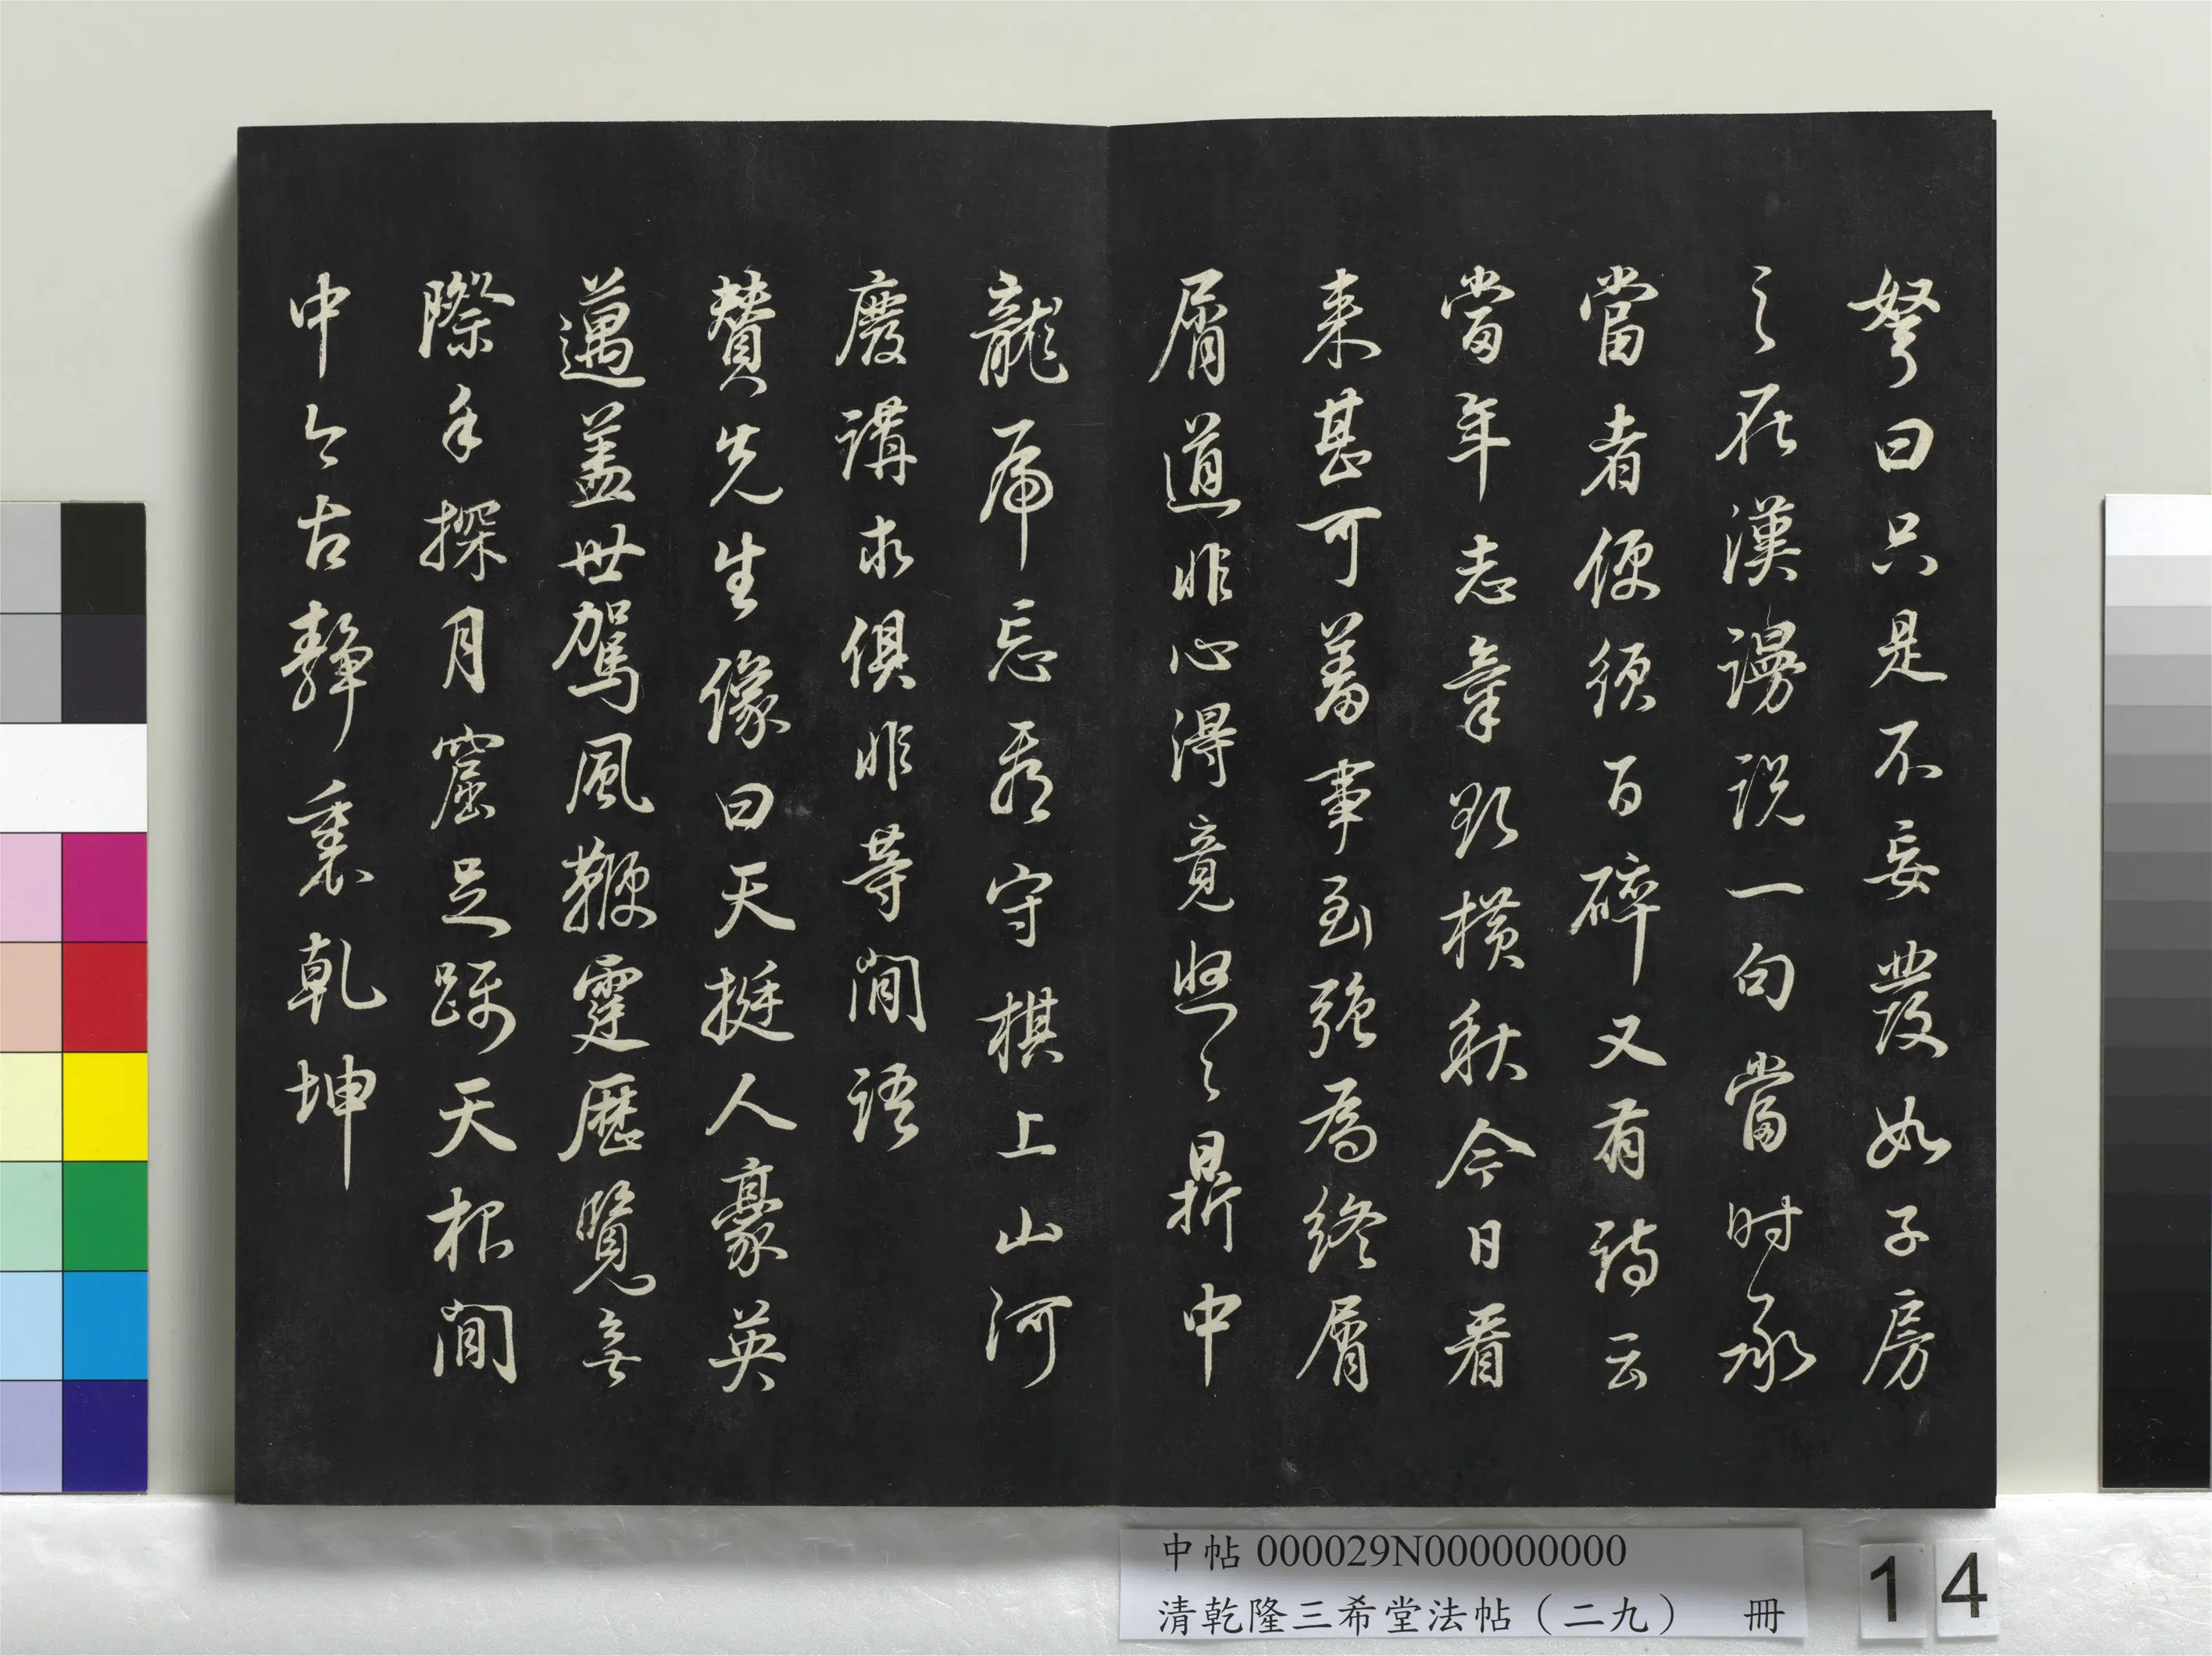 弩曰只是不妄發如子房
之在漢謾説一句當时承
當者便須百碎又有詩云
當年志氣欲橫秋今日看
来甚可羞事到強為終屑
屑道非心得竟悠〻鼎中
龍虎忘看守棋上山河
廢講求俱非等閒語
賛先生像曰天挺人豪英
邁盖世駕風鞭霆歷覽無
際手探月窟足躡天根閒
中今古靜裏乾坤
中帖 000029N000000000
清乾隆三希堂法帖（二九） 冊
14